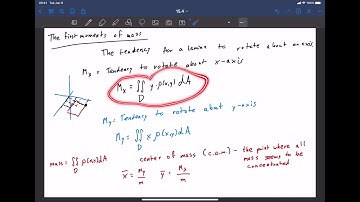 15.4
The first moments of mass
The tendency for a lamina to rotate about an axis
Mx = Tendency to rotate about x-axis
Mx = ∬ y · ρ(x,y) dA
D
My = Tendency to rotate about y-axis
My = ∬ x ρ(x,y) dA
D
mass = ∬ ρ(x,y) dA
D
center of mass (c.o.m.) - the point where all
mass seems to be
concentrated
x̄ = My/m ȳ = Mx/m